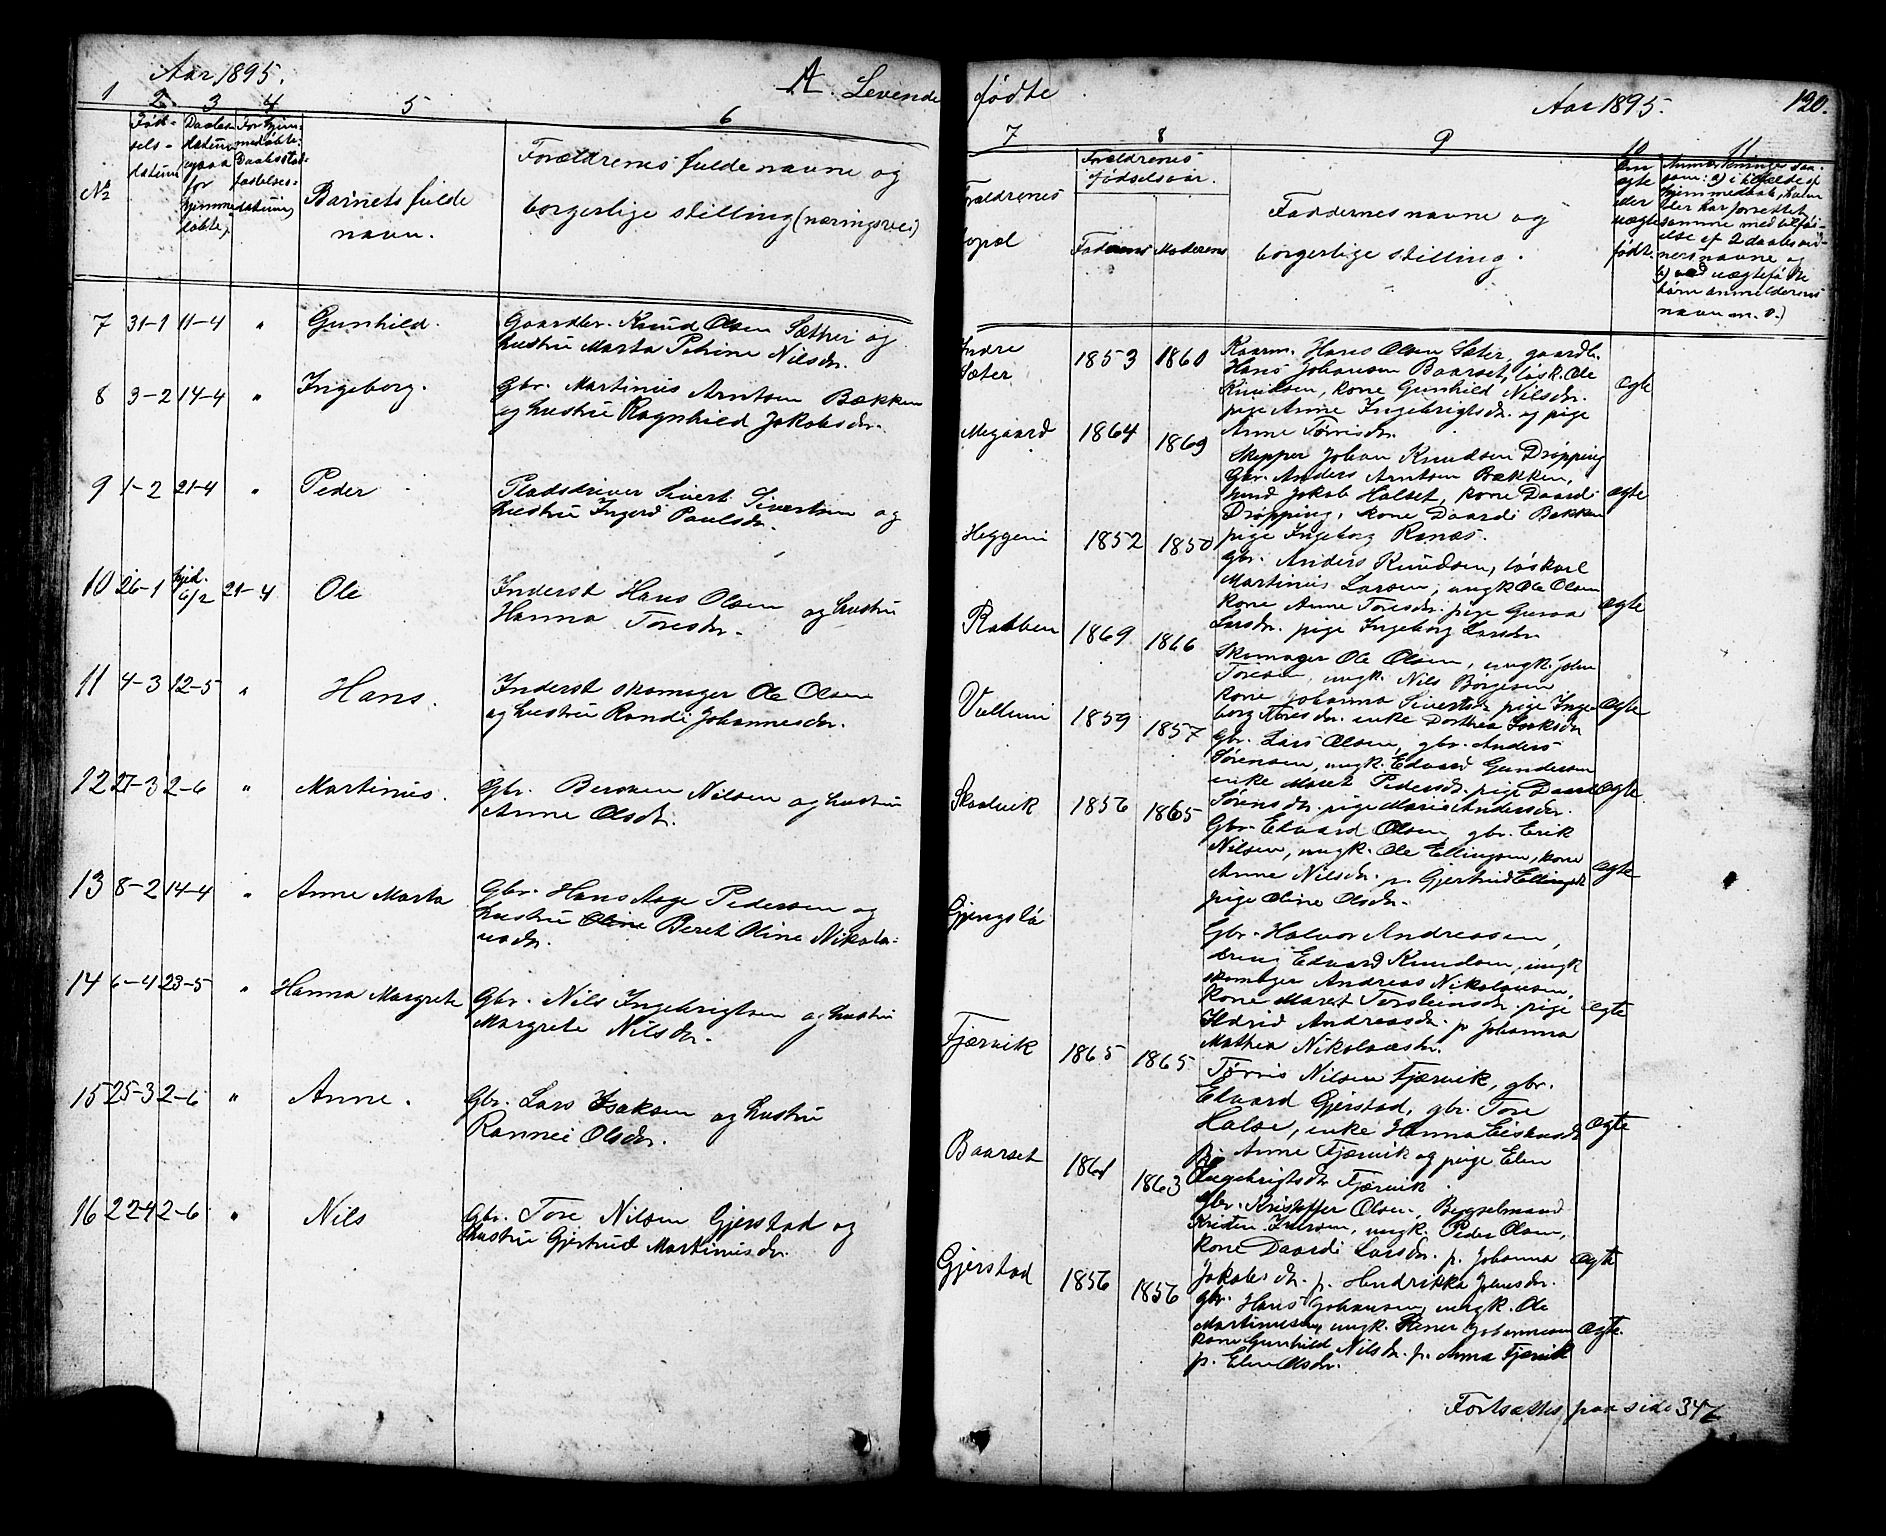 Aar 1895.
A. Levende
1
2.
3
4
5
6
Nº
Fød-
sels-
datum
Daabs-
datum
for
hjemme-
døbte
Barnets fulde
navn.
Forældrenes fulde navne og
borgerlige stilling (næringsvei)
7 31-1 11-4 " Gunhild. Gaardbr. Knud Olsen Sæther og
hustru Marta Petrine Nilsdr.
8 3-2 14-4 " Ingeborg. Gbr. Martinus Arntsen Bækken
og hustru Ragnhild Jakobsdr.
9 1-2 21-4 " Peder Pladsdriver Sivert Sivertsen og
hustru Ingerd Paulsdr.
10 26-1 hjed. 6/2 21-4 Ole Inderst Hans Olsen og hustru
Hanna Toresdr.
11 4-3 12-5 " Hans. Inderst skomager Ole Olsen
og hustru Randi Johannesdr.
12 27-3 2-6 " Martinus. Gbr. Nilsen og hustru
Anne Olsdr.
13 8-2 14-4 " Anne Marta Gbr. Hans Aage Pedersen og
hustru Oline Beret Oline Nikola-
usdr.
14 6-4 23-5 " Hanna Margrete Gbr. Nils Ingebrigtsen og hustru
Margrete Nilsdr.
15 25-3 2-6 " Anne. Gbr. Lars Isaksen og hustru
Rannei Olsdr.
16 22-4 2-6 " Nils Gbr. Tore Nilsen Gjerstad og
hustru Gjertrud Martinusdr.
fødte
Aar 1895.
120.
7
8
9
10
11
Forældrenes
bopæl
Forældrenes
fødselsaar.
Faderens Moderens
Faddernes navne og
borgerlige stilling.
ægte
eller
uægte
fødte
Indre
Sæter 1853 1860
Kaarm. Hans Olsen Sæter, gaardb.
Hans Johansen Baarset, løsk. Ole
Knudsen, kone Gunhild Nilsdr.
pige Anne Ingebrigtsdr. og pige
Anne Tørrisdr.
ægte
Megaard 1864 1869
Skipper Johan Knudsen Drøpping
Gbr. Anders Arntsen Bækken,
Jakob Halset, kone Daardi
Drøpping, kone Daardi Bækken
pige Ingeborg Ranæs.
ægte
Heggem 1852 1850
gbr. Anders Knudsen, løskarl
Martinus Larsen, ungk. Ole Olsen
kone Anne Toresdr. pige Guroa
Larsdr. pige Ingeborg Larsdr
ægte
Rabben 1869 1866
Skomager Ole Olsen, ungk. John
Toresen, ungk. Nils Børgesen
kone Johanna Sivertsdr. pige Inge-
borg Toresdr. enke Dorthea Isaksdr
ægte
Vullum 1859 1857
gbr. Lars Olsen, gbr. Anders
Sørensen, ungk. Edvard Gundersen
enke Maret Pedersdr. pige Daardi
Sørensdr. pige Marie Andersdr.
ægte
Skaalvik 1856 1865
Gbr. Edvard Olsen, gbr. Erik
Nilsen, ungk. Ole Ellingsen, kone
Anne Nilsdr. p. Gjertrud Ellingsdr
pige Oline Olsdr.
ægte
Gjengstø
Gbr. Halvor Andreassen,
dreng Edvard Knudsen, ungk
skomager Andreas Nikolausen,
kone Maret Torsteinsdr. pige
Ildrid Andreasdr. p. Johanna
Mathea Nikolausdr.
ægte
Fjærvik 1865 1865
Tørris Nilsen Fjærvik, gbr.
Edvard Gjerstad, gbr. Tore
Halse, enke Hanna
Anne Fjærvik og pige Elen
Ingebrigtsdr. Fjærvik.
ægte
Baarset 1861 1863
gbr. Kristoffer Olsen, Bergselmand
Kristen Iversen, ungk. Peder Olsen,
kone Daardi Larsdr. p. Johanna
Jakobsdr. p. Hendrikka Johnsdr.
ægte
Gjerstad 1856 1856
gbr. Hans Johansen, ungk. Ole
Martinussen, ungk. Johannesen
kone Gunhild Nilsdr. p. Anna Fjærvik
p. Elen Olsdr.
ægte.
Fortsættes paa side 346